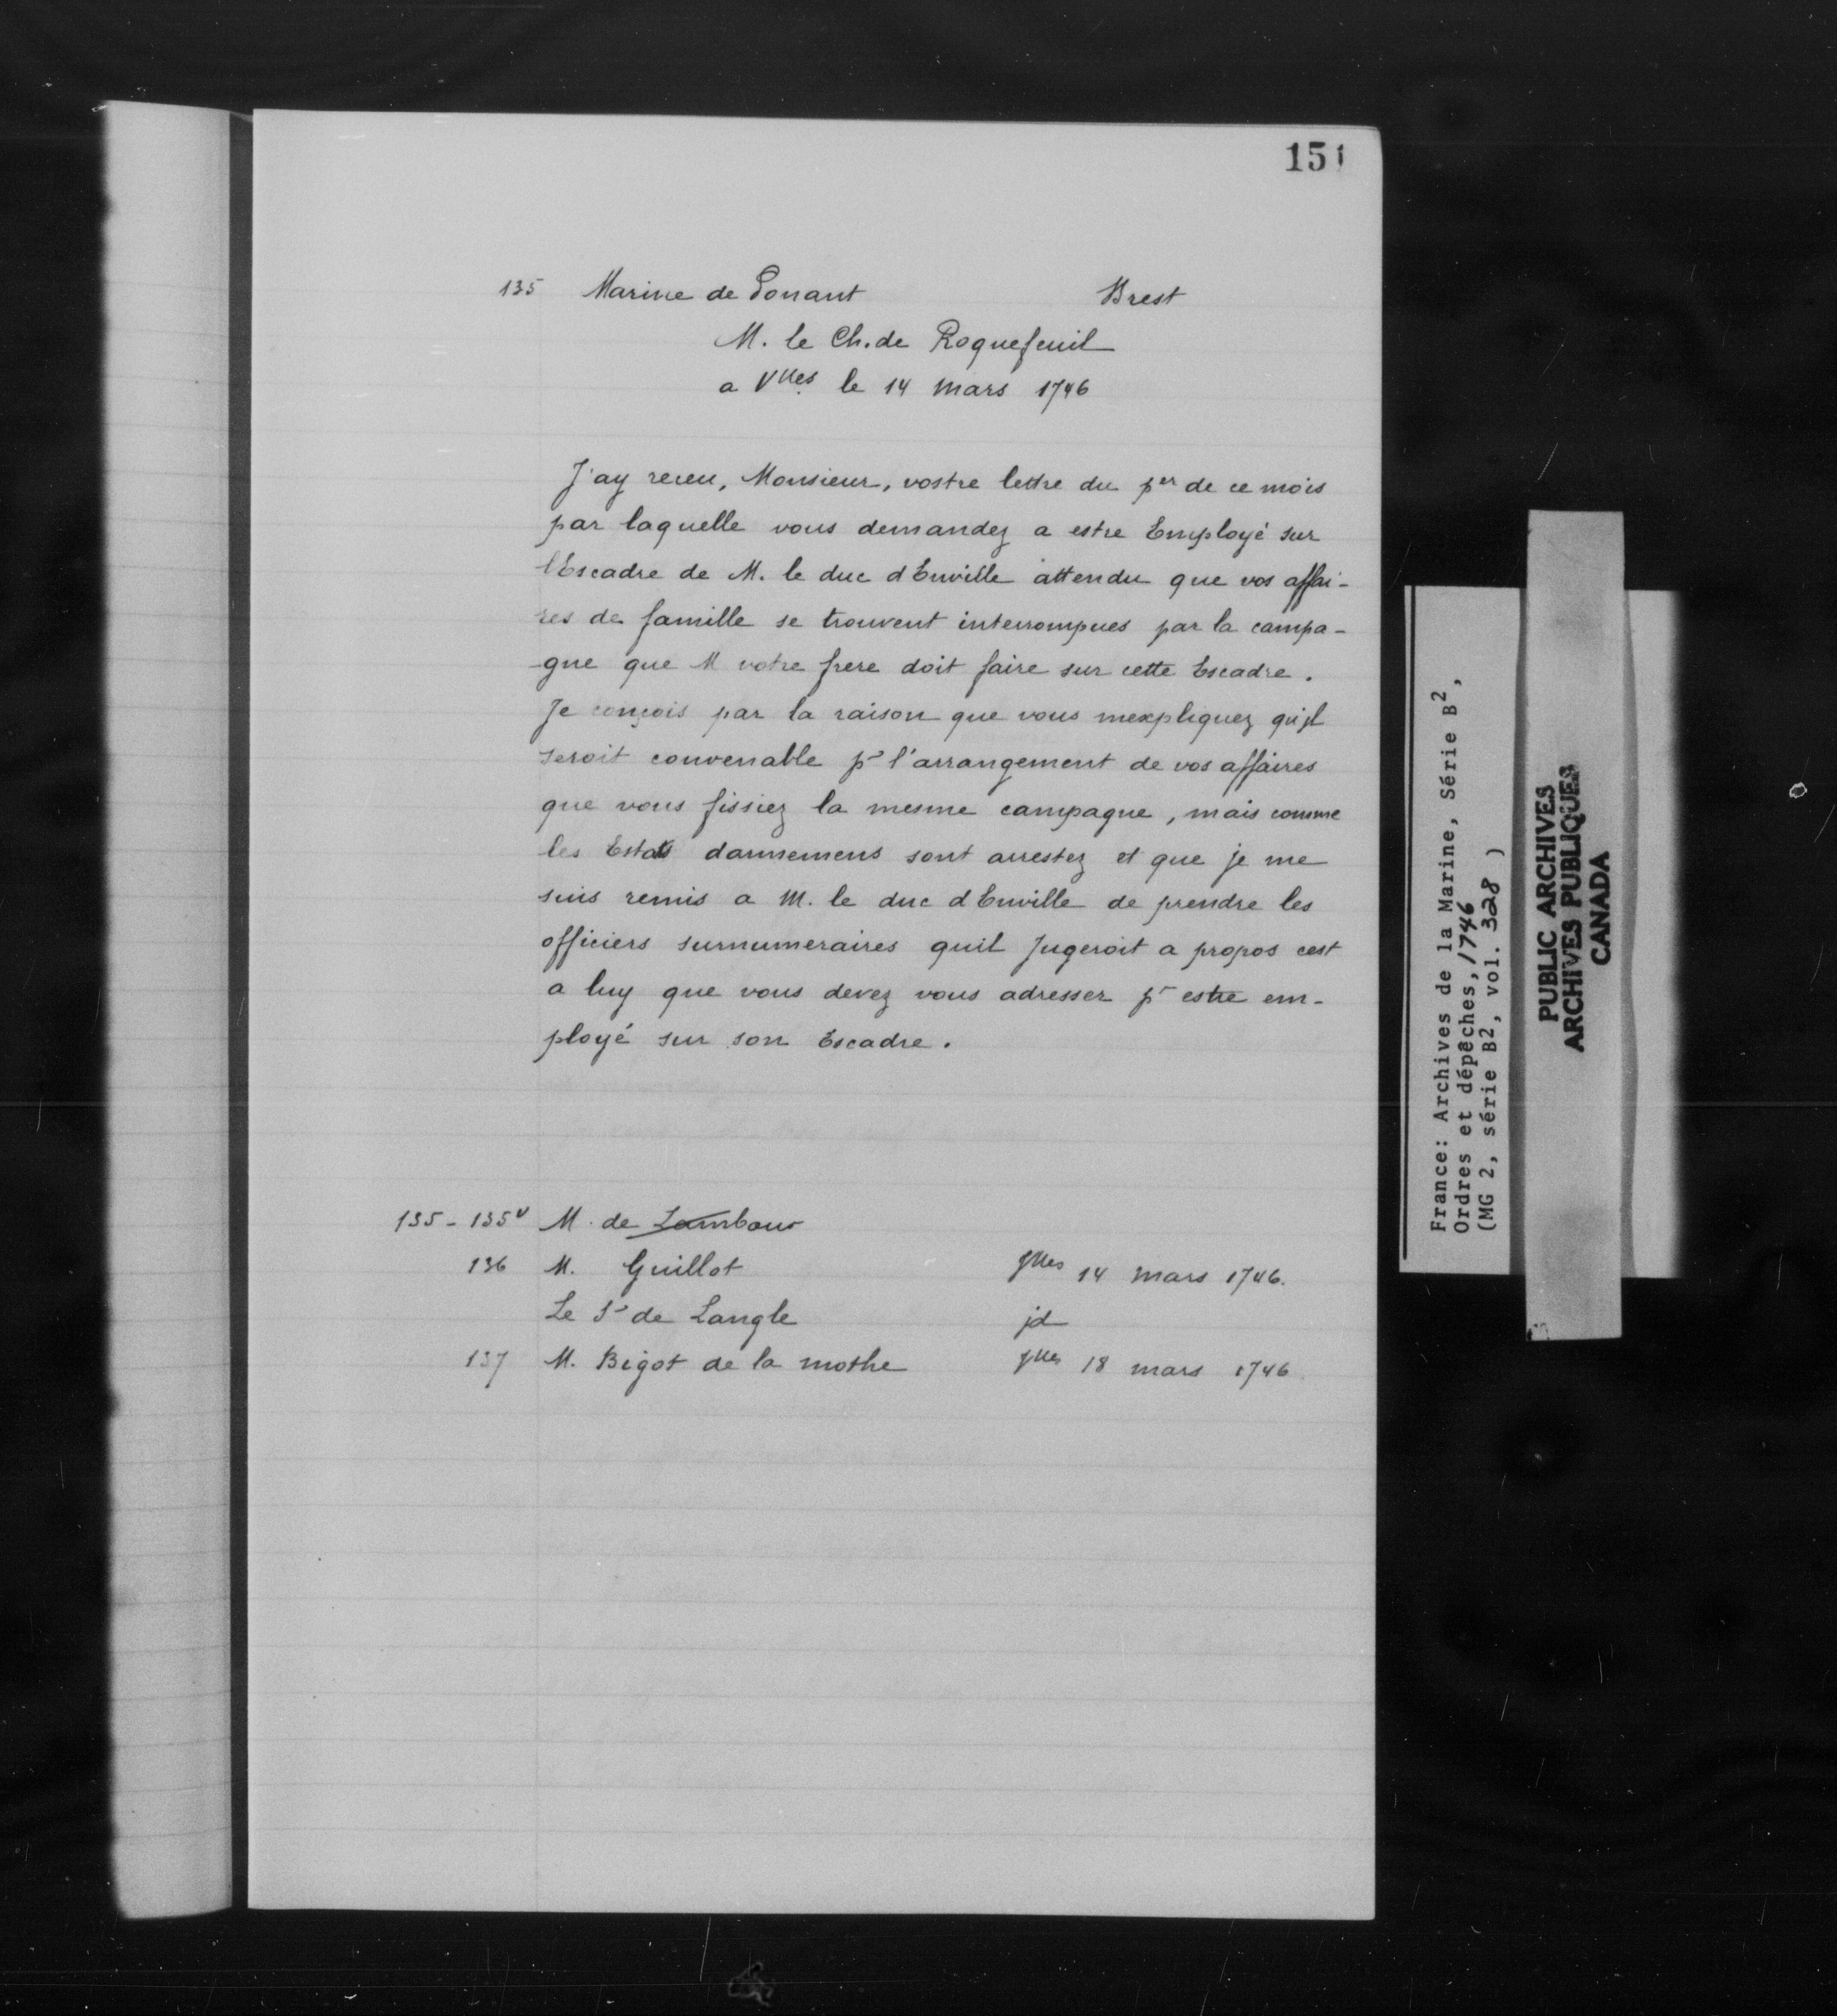 151
135 Marine de Ponant Brest
M. le Ch. de Roquefeuil
a Vlles le 14 Mars 1746
J'ay receu, Monsieur, vostre lettre du per de ce mois
par laquelle vous demandez a estre Employé sur
l'Escadre de M. le duc d'Enville attendu que vos affai-
res de famille se trouvent interrompues par la campa-
gne que M votre frere doit faire sur cette Escadre.
Je conçois par la raison que vous mexpliquez qu'jl
seroit convenable pr l'arrangement de vos affaires
que vous fissiez la mesme campagne, mais comme
les Estats darmemens sont arrestez et que je me
suis remis a M. le duc d'Enville de prendre les
officiers surnumeraires quil Jugeroit a propos cest
a luy que vous devez vous adresser pr estre em-
ployé sur son Escadre.
135 - 135v M. de
136 M. Guillot Vlles 14 mars 1746.
Le Sr de Langle jd
137 M. Bigot de la mothe Vlles 18 mars 1746
France: Archives de la Marine, Série B2,
Ordres et dépêches, 1746
(MG 2, série B2, vol. 328 )
PUBLIC ARCHIVES
ARCHIVES PUBLIQUES
CANADA